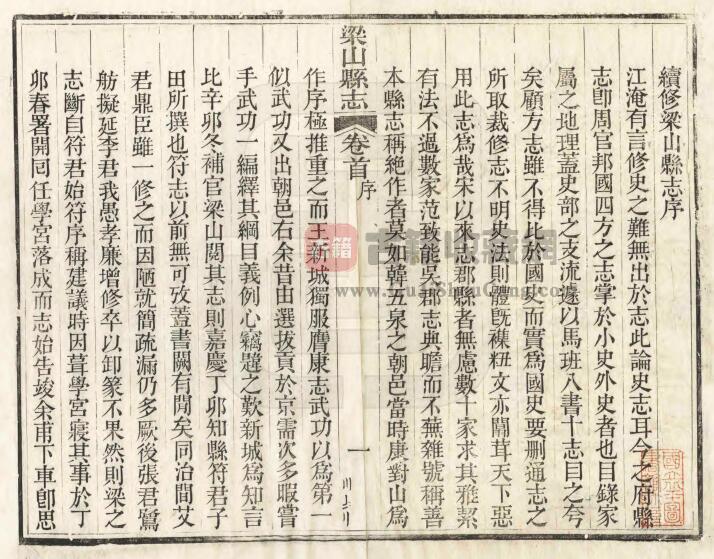 續修梁山縣志序
江淹有言修史之難無出於志此論史志耳今之府縣
志卽周官邦國四方之志掌於小史外史者也目錄家
屬之地理蓋史部之支流遽以馬班八書十志目之夸
矣顧方志雖不得比於國史而實爲國史要刪通志之
所取裁修志不明史法則體旣襍糅文亦闒茸天下惡
用此志爲哉宋以來志郡縣者無慮數十家求其雅絜
有法不過數家范致能吳郡志典贍而不蕪雜號稱善
本縣志稱絕作者莫如韓五泉之朝邑當時康對山爲
梁山縣志
卷首
序
一
作序極推重之而王新城獨服膺康志武功以爲第一
似武功又出朝邑右余昔由選拔貢於京需次多暇嘗
手武功一編繹其綱目義例心竊韙之歎新城爲知言
比辛卯冬補官梁山閱其志則嘉慶丁卯知縣符君子
田所撰也符志以前無可攷蓋書闕有閒矣同治間艾
君鼎臣雖一修之而因陋就簡疏漏仍多厥後張君鷺
舫擬延李君我愚孝廉增修卒以卸篆不果然則梁之
志斷自符君始符序稱建議時因葺學宮寢其事於丁
卯春署開同任學宮落成而志始告竣余甫下車卽思
古籍收藏网